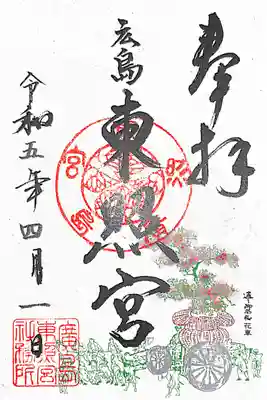 奉拝
広島
東照宮
令和五年四月一日
廣島
東照宮
社務所